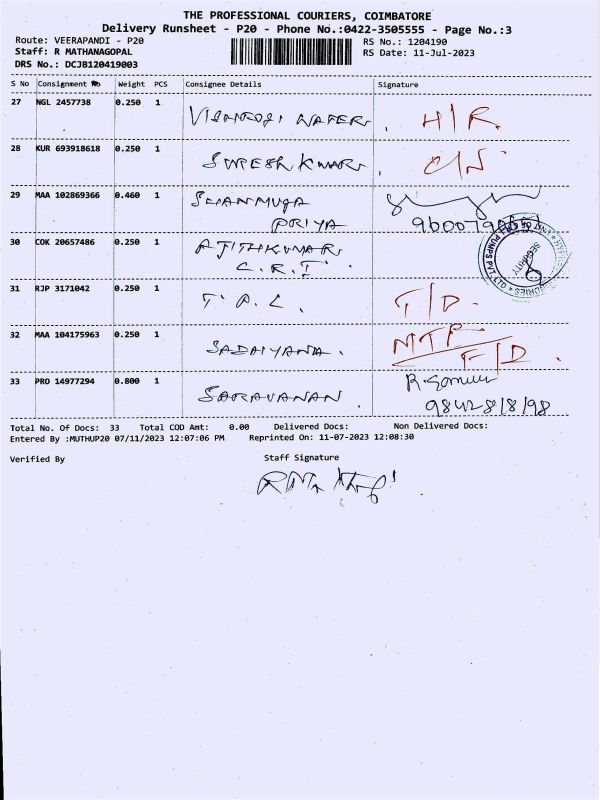 THE PROFESSIONAL COURIERS, COIMBATORE
Delivery Runsheet - P20 - Phone No.:0422-3505555 - Page No.:3
Route: VEERAPANDI - P20 RS No.: 1204190
Staff: R MATHANAGOPAL RS Date: 11-Jul-2023
DRS No.: DCJB120419003
S No Consignment No Weight PCS Consignee Details Signature
27 NGL 2457738 0.250 1
H/R
28 KUR 693918618 0.250 1 SURESH KUMAR
29 MAA 102869366 0.460 1 SHANMUGA
PRIYA
30 COK 20657486 0.250 1 AJITHKUMAR
C.R.I. SECURITY
31 RJP 3171042 0.250 1 T.A.C. T/D.
32 MAA 104175963 0.250 1 SADAIYANA. MTR
F/D.
33 PRO 14977294 0.800 1 SARAVANAN.
98428 18198
Total No. Of Docs: 33 Total COD Amt: 0.00 Delivered Docs: Non Delivered Docs:
Entered By :MUTHUP20 07/11/2023 12:07:06 PM Reprinted On: 11-07-2023 12:08:30
Verified By Staff Signature